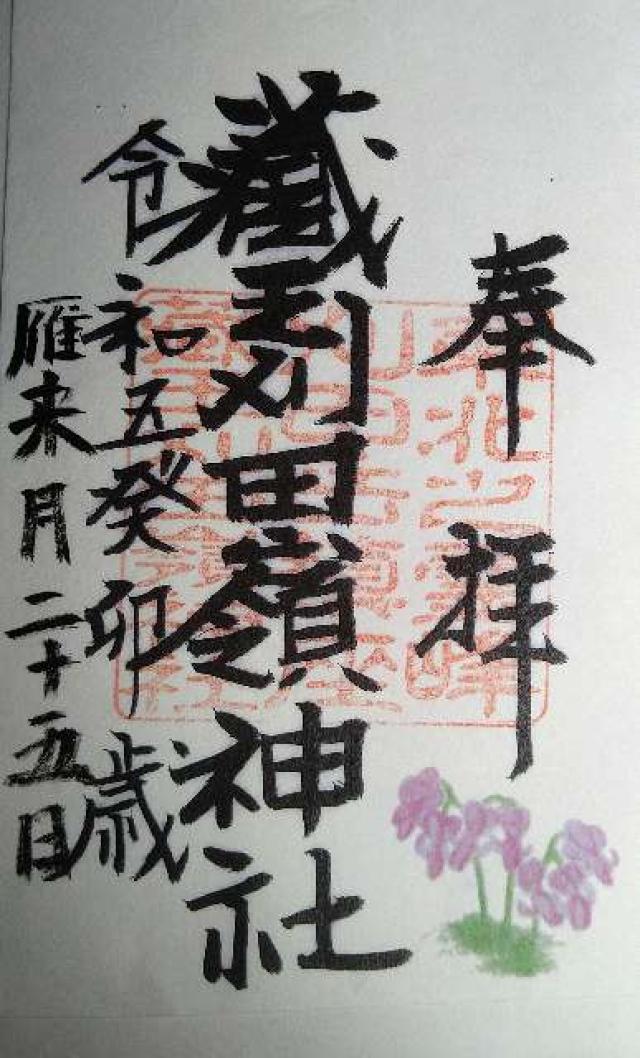 奉拝
藏王刈田嶺神社
令和五癸卯歳
雁来月二十五日